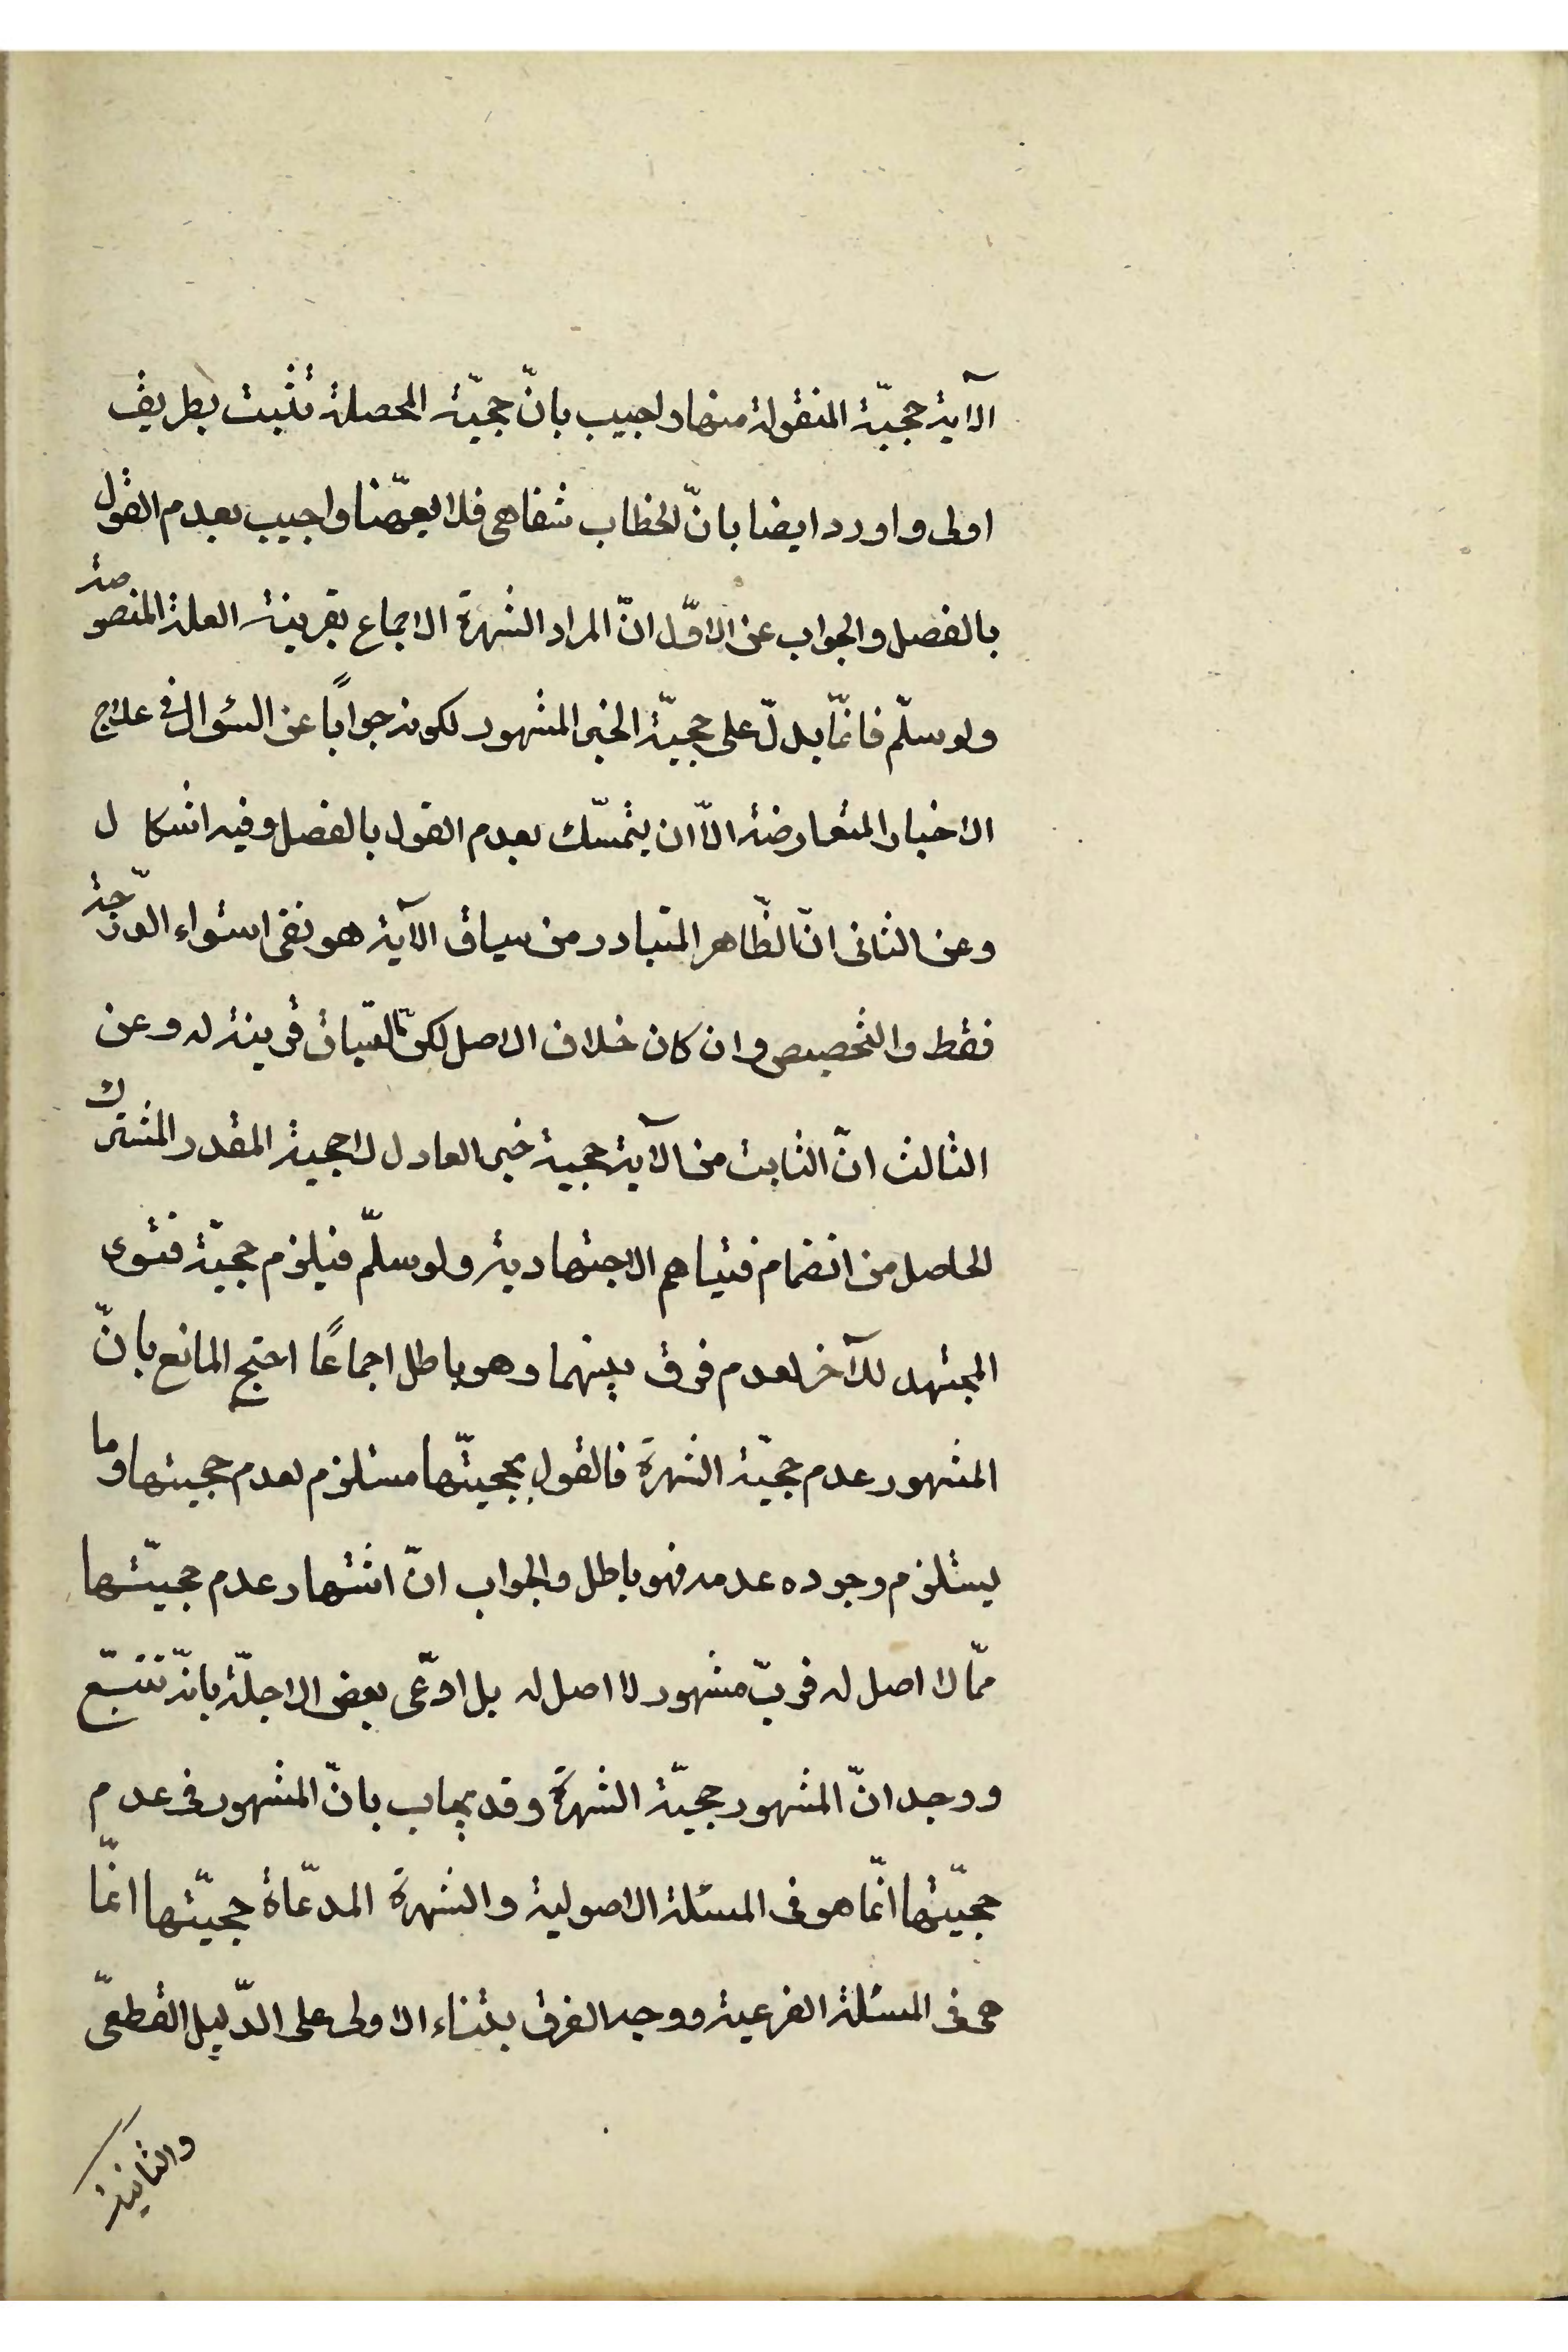 الآية حجيّة المنقولة منها واجيب بانّ حجيّة المحصلة تثبت بطريق
اولى واورد ايضا بانّ الخطاب شفاهى فلا يعمّنا واجيب بعدم القول
بالفصل والجواب عن الاوّل انّ المراد الشهرة الاجماع بقرينة العلة المنصوصة
ولو سلّم فانّما يدلّ على حجيّة الخبر المشهور لكونه جوابًا عن السئوال فى علاج
الاخبار المتعارضة الاّ ان يتمسّك بعدم القول بالفصل وفيه اشكال
وعن الثانى انّ الظّاهر المتبادر من سياق الآية هو نفى استواء الدّرجة
فقط والتخصيص وان كان خلاف الاصل لكنّ السّياق قرينة له وعن
الثالث انّ الثابت من الآية حجية خبر العادل لا حجية المقدر المشترك
الحاصل من انضمام فتياهم الاجتهادية ولو سلّم فيلزم حجيّة فتوى
المجتهد للآخر لعدم فرق بينهما وهو باطل اجماعًا احتج المانع بانّ
المشهور عدم حجيّة الشهرة فالقول بحجيتّها مستلزم لعدم حجيتها وما
يستلزم وجوده عدمه فهو باطل والجواب انّ اشتهار عدم حجيّتها
ممّا لا اصل له فربّ مشهور لا اصل له بل ادّعى بعض الاجلّة بانّه تتبّع
ووجد انّ المشهور حجيّة الشهرة وقد يجاب بانّ المشهور فى عدم
حجيّتها انّما هو فى المسئلة الاصولية والشهرة المدّعاة حجيّتها انّما
هى فى المسئلة الفرعية ووجه الفرق بتناء الاولى على الدّليل القطعىّ
والثانية